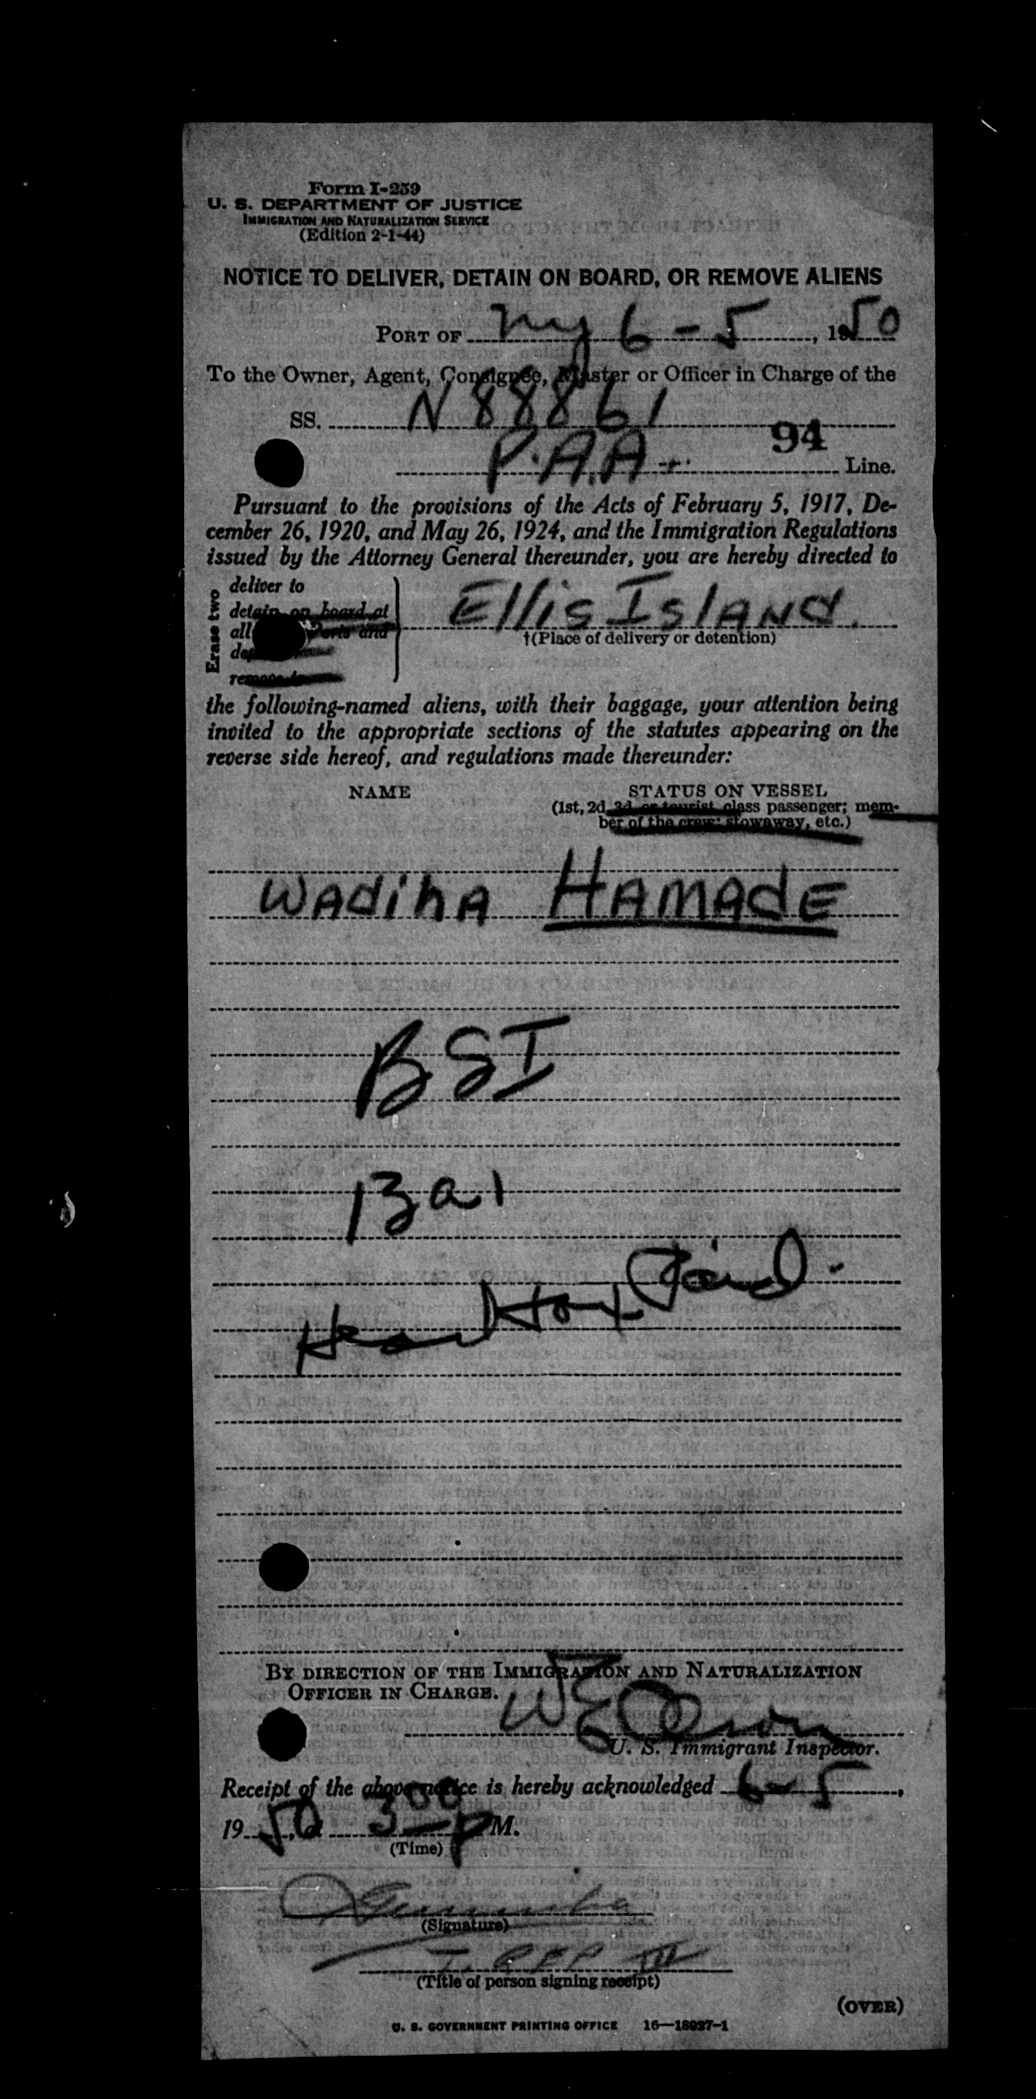 Form I-259
U. S. DEPARTMENT OF JUSTICE
IMMIGRATION AND NATURALIZATION SERVICE
(Edition 2-1-44)
NOTICE TO DELIVER, DETAIN ON BOARD, OR REMOVE ALIENS
PORT OF ny 6-5, 1950
To the Owner, Agent, Consignee, Master or Officer in Charge of the
SS. N 88861
94
P.A.A. Line.
Pursuant to the provisions of the Acts of February 5, 1917, De-
cember 26, 1920, and May 26, 1924, and the Immigration Regulations
issued by the Attorney General thereunder, you are hereby directed to
Erase two
deliver to
detain on board at
all Ports and
remove to
Ellis Island.
†(Place of delivery or detention)
the following-named aliens, with their baggage, your attention being
invited to the appropriate sections of the statutes appearing on the
reverse side hereof, and regulations made thereunder:
NAME STATUS ON VESSEL
(1st, 2d, 3d or tourist class passenger; mem-
ber of the crew; stowaway, etc.)
WADIHA HAMADE
BSI
Head tax Paid.
BY DIRECTION OF THE IMMIGRATION AND NATURALIZATION
OFFICER IN CHARGE.
U. S. Immigrant Inspector.
Receipt of the above notice is hereby acknowledged 6-5,
1950, 300 P M.
(Time)
(Signature)
(Title of person signing receipt)
(OVER)
U. S. GOVERNMENT PRINTING OFFICE 16—18927-1